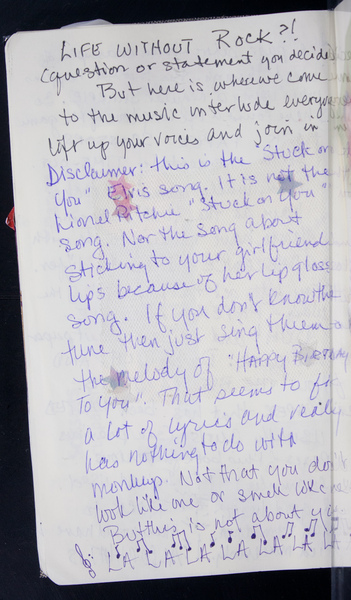 LIFE WITHOUT ROCK?!
(question or statement you decide
But here is where we come
to the music interlude everyone
lift up your voices and join in
Disclaimer: this is the "Stuck on
You" Elvis song. It is not the
Lionel Ritchie "Stuck on You"
song. Nor the song about
sticking to your girlfriend
lips because of her lip gloss
song. If you don't know the
tune then just sing them to
the melody of "HAPPY BIRTHDAY
TO YOU". That seems to fit
a lot of lyrics and really
has nothing to do with
monkeys. Not that you don't
look like one or smell like one
But this is not about you
LA LA LA LA LA LA LA